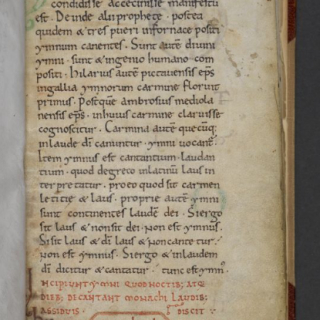 condidisse accecinisse manifestu
est. Deinde alii prophete. postea
quidem & tres pueri infornace positi
ymnum canentes. Sunt autē diuini
ymni. sunt & ingenio humano com
positi. hilarius autē pictauensis ep̄s
ingallia ymnorum carmine floruit
primus. Postquē ambrosius mediola
nensis ep̄s. inhuius carmine claruisse
cognoscitur. Carmina autē quecūq;
inlaude dī canuntur. ymni uocant̄.
Item ymnus est cantantium laudan
tium. quod degreco inlatinū laus in
ter pretatur. pro eo quod sit carmen
leticie & laus. proprie autē ymni
sunt continentes laudē dei. Si ergo
sit laus & non sit dei. Non est ymnus.
Si sit laus & dī laus & non cante tur.
Non est ymnus. Si ergo & inlaudem
dī dicitur & cantatur. tunc est ymn̄.
INCIPIUNT YMNI QUO NOCTIB; ATQ
DIEB; DECANTANT MONACHI LAUDIB;
ASSIDUIS